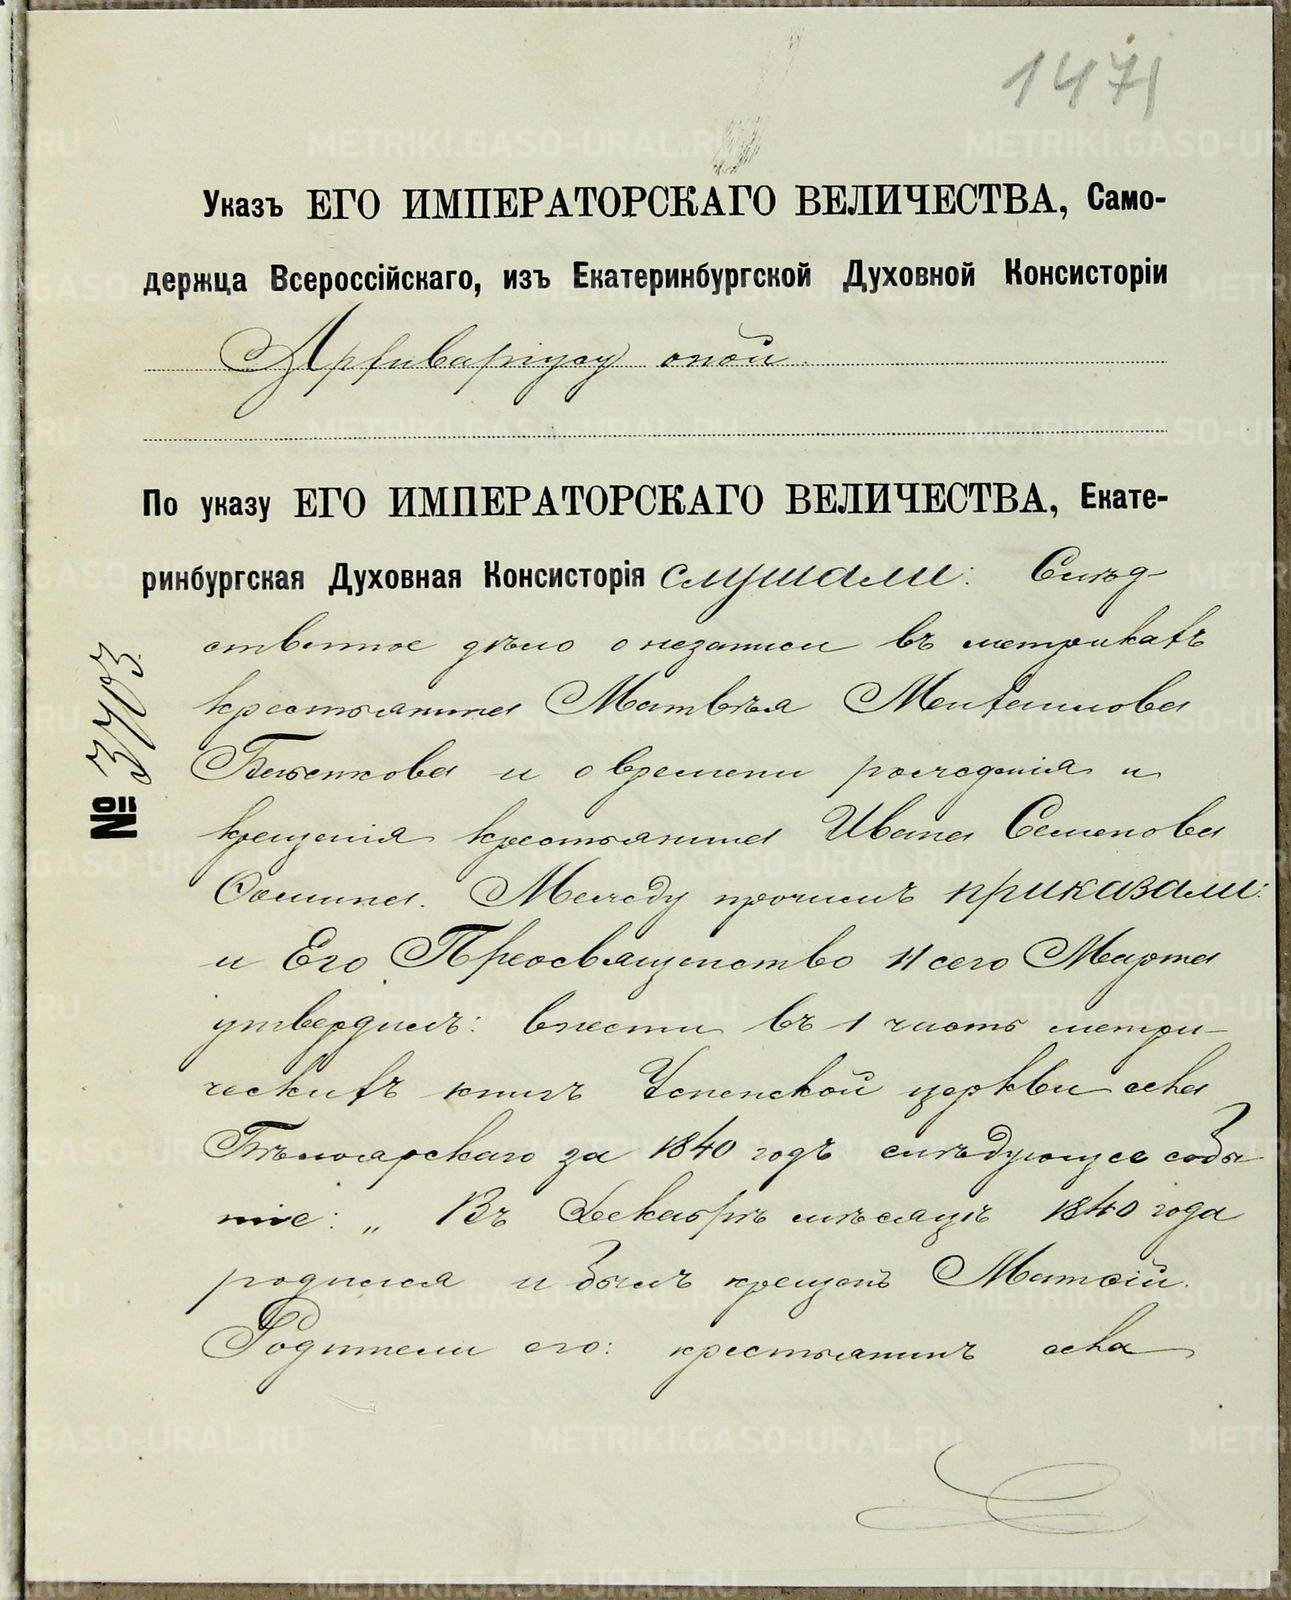 1471
Указъ ЕГО ИМПЕРАТОРСКАГО ВЕЛИЧЕСТВА, Само-
держца Всероссійскаго, изъ Екатеринбургской Духовной Консисторіи
Архиваріусу оной.
По указу ЕГО ИМПЕРАТОРСКАГО ВЕЛИЧЕСТВА, Екате-
ринбургская Духовная Консисторія слушали: Слѣд-
ственное дѣло о незаписи въ метрикахъ
крестьянина Матвѣя Михаилова
и о времени рожденія и
крещенія крестьянина Ивана Семенова
Между прочимъ приказали:
и Его Преосвященство 11 сего Марта
утвердилъ: внести въ 1 часть метри-
ческихъ книгъ Успенской церкви села
Бѣлоярскаго за 1840 годъ слѣдующее собы
тіе: „ Въ Декабрѣ мѣсяцѣ 1840 года
родился и былъ крещенъ Матѳій.
Родители его: крестьянинъ села
№ 3703
METRIKI.GASO-URAL.RU